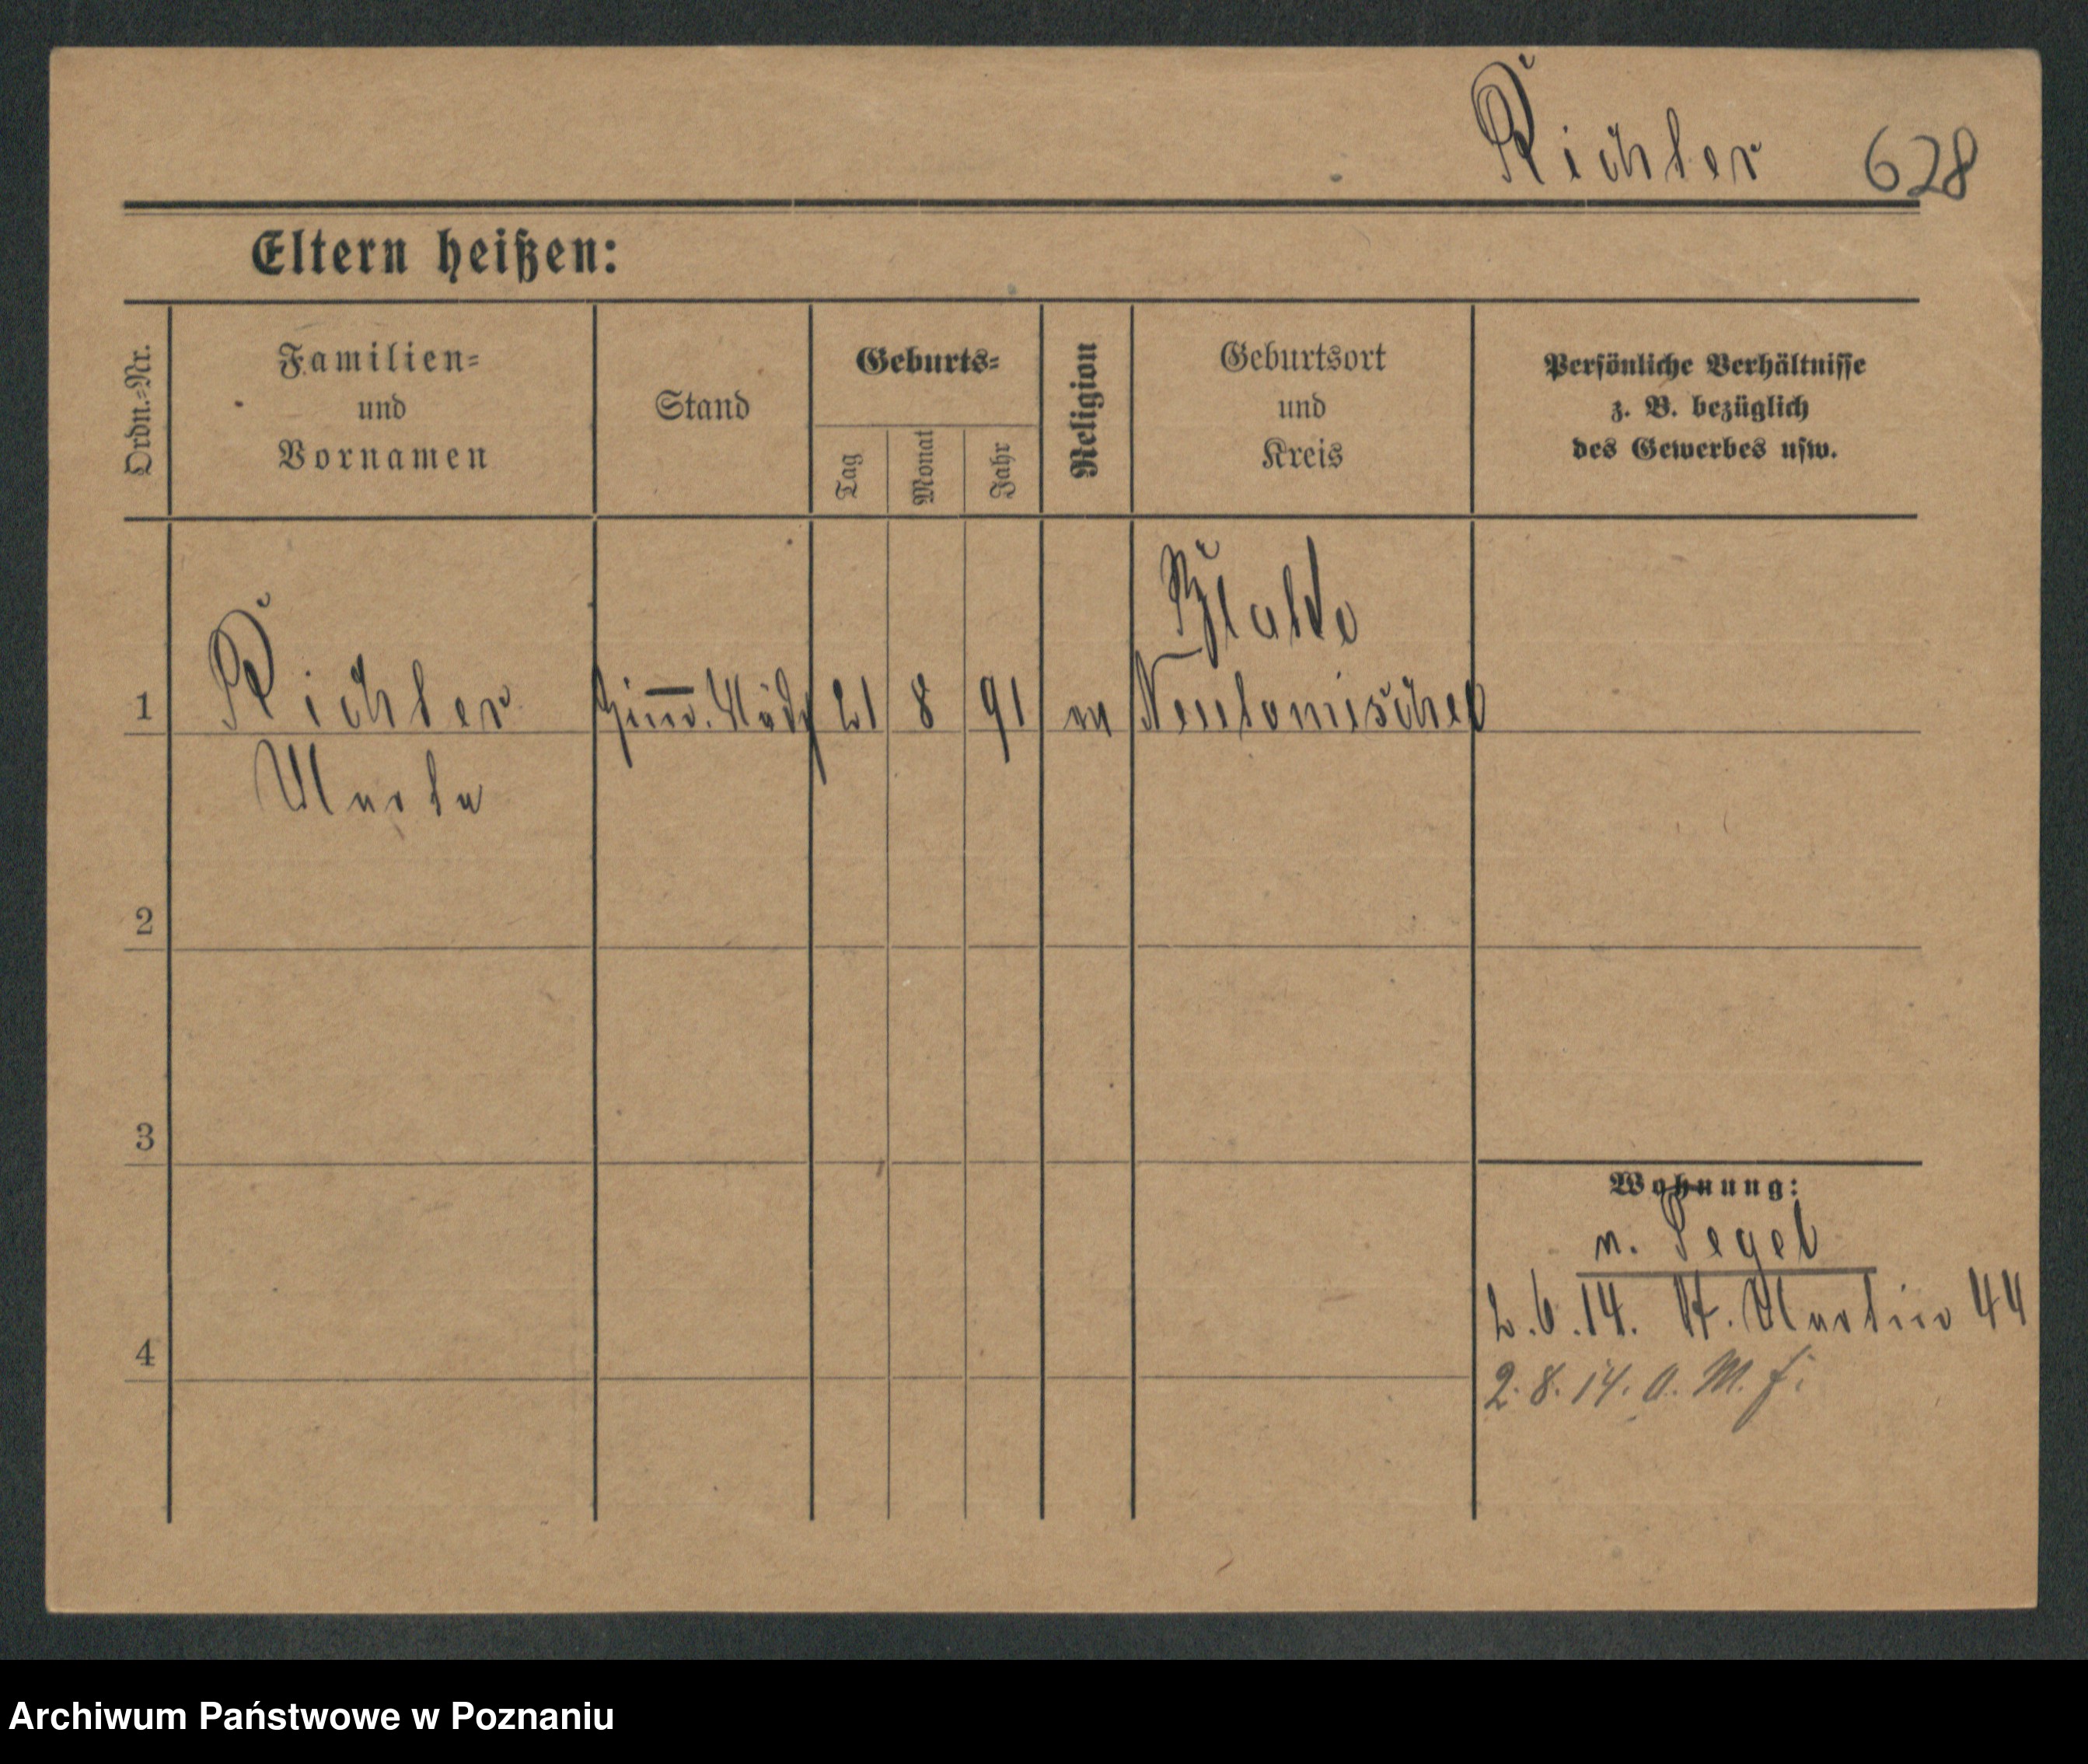 Richter 628
Eltern heißen:
Ordn.-Nr.
Familien-
und
Vornamen
Stand
Geburts-
Tag
Monat
Jahr
Religion
Geburtsort
und
Kreis
Persönliche Verhältnisse
z. B. bezüglich
des Gewerbes usw.
1
Richter
Marta
21 8 91
Neutomischel
2
3
4
Wohnung:
2.6.14. St. Martin 44
2.8.14.
Archiwum Państwowe w Poznaniu